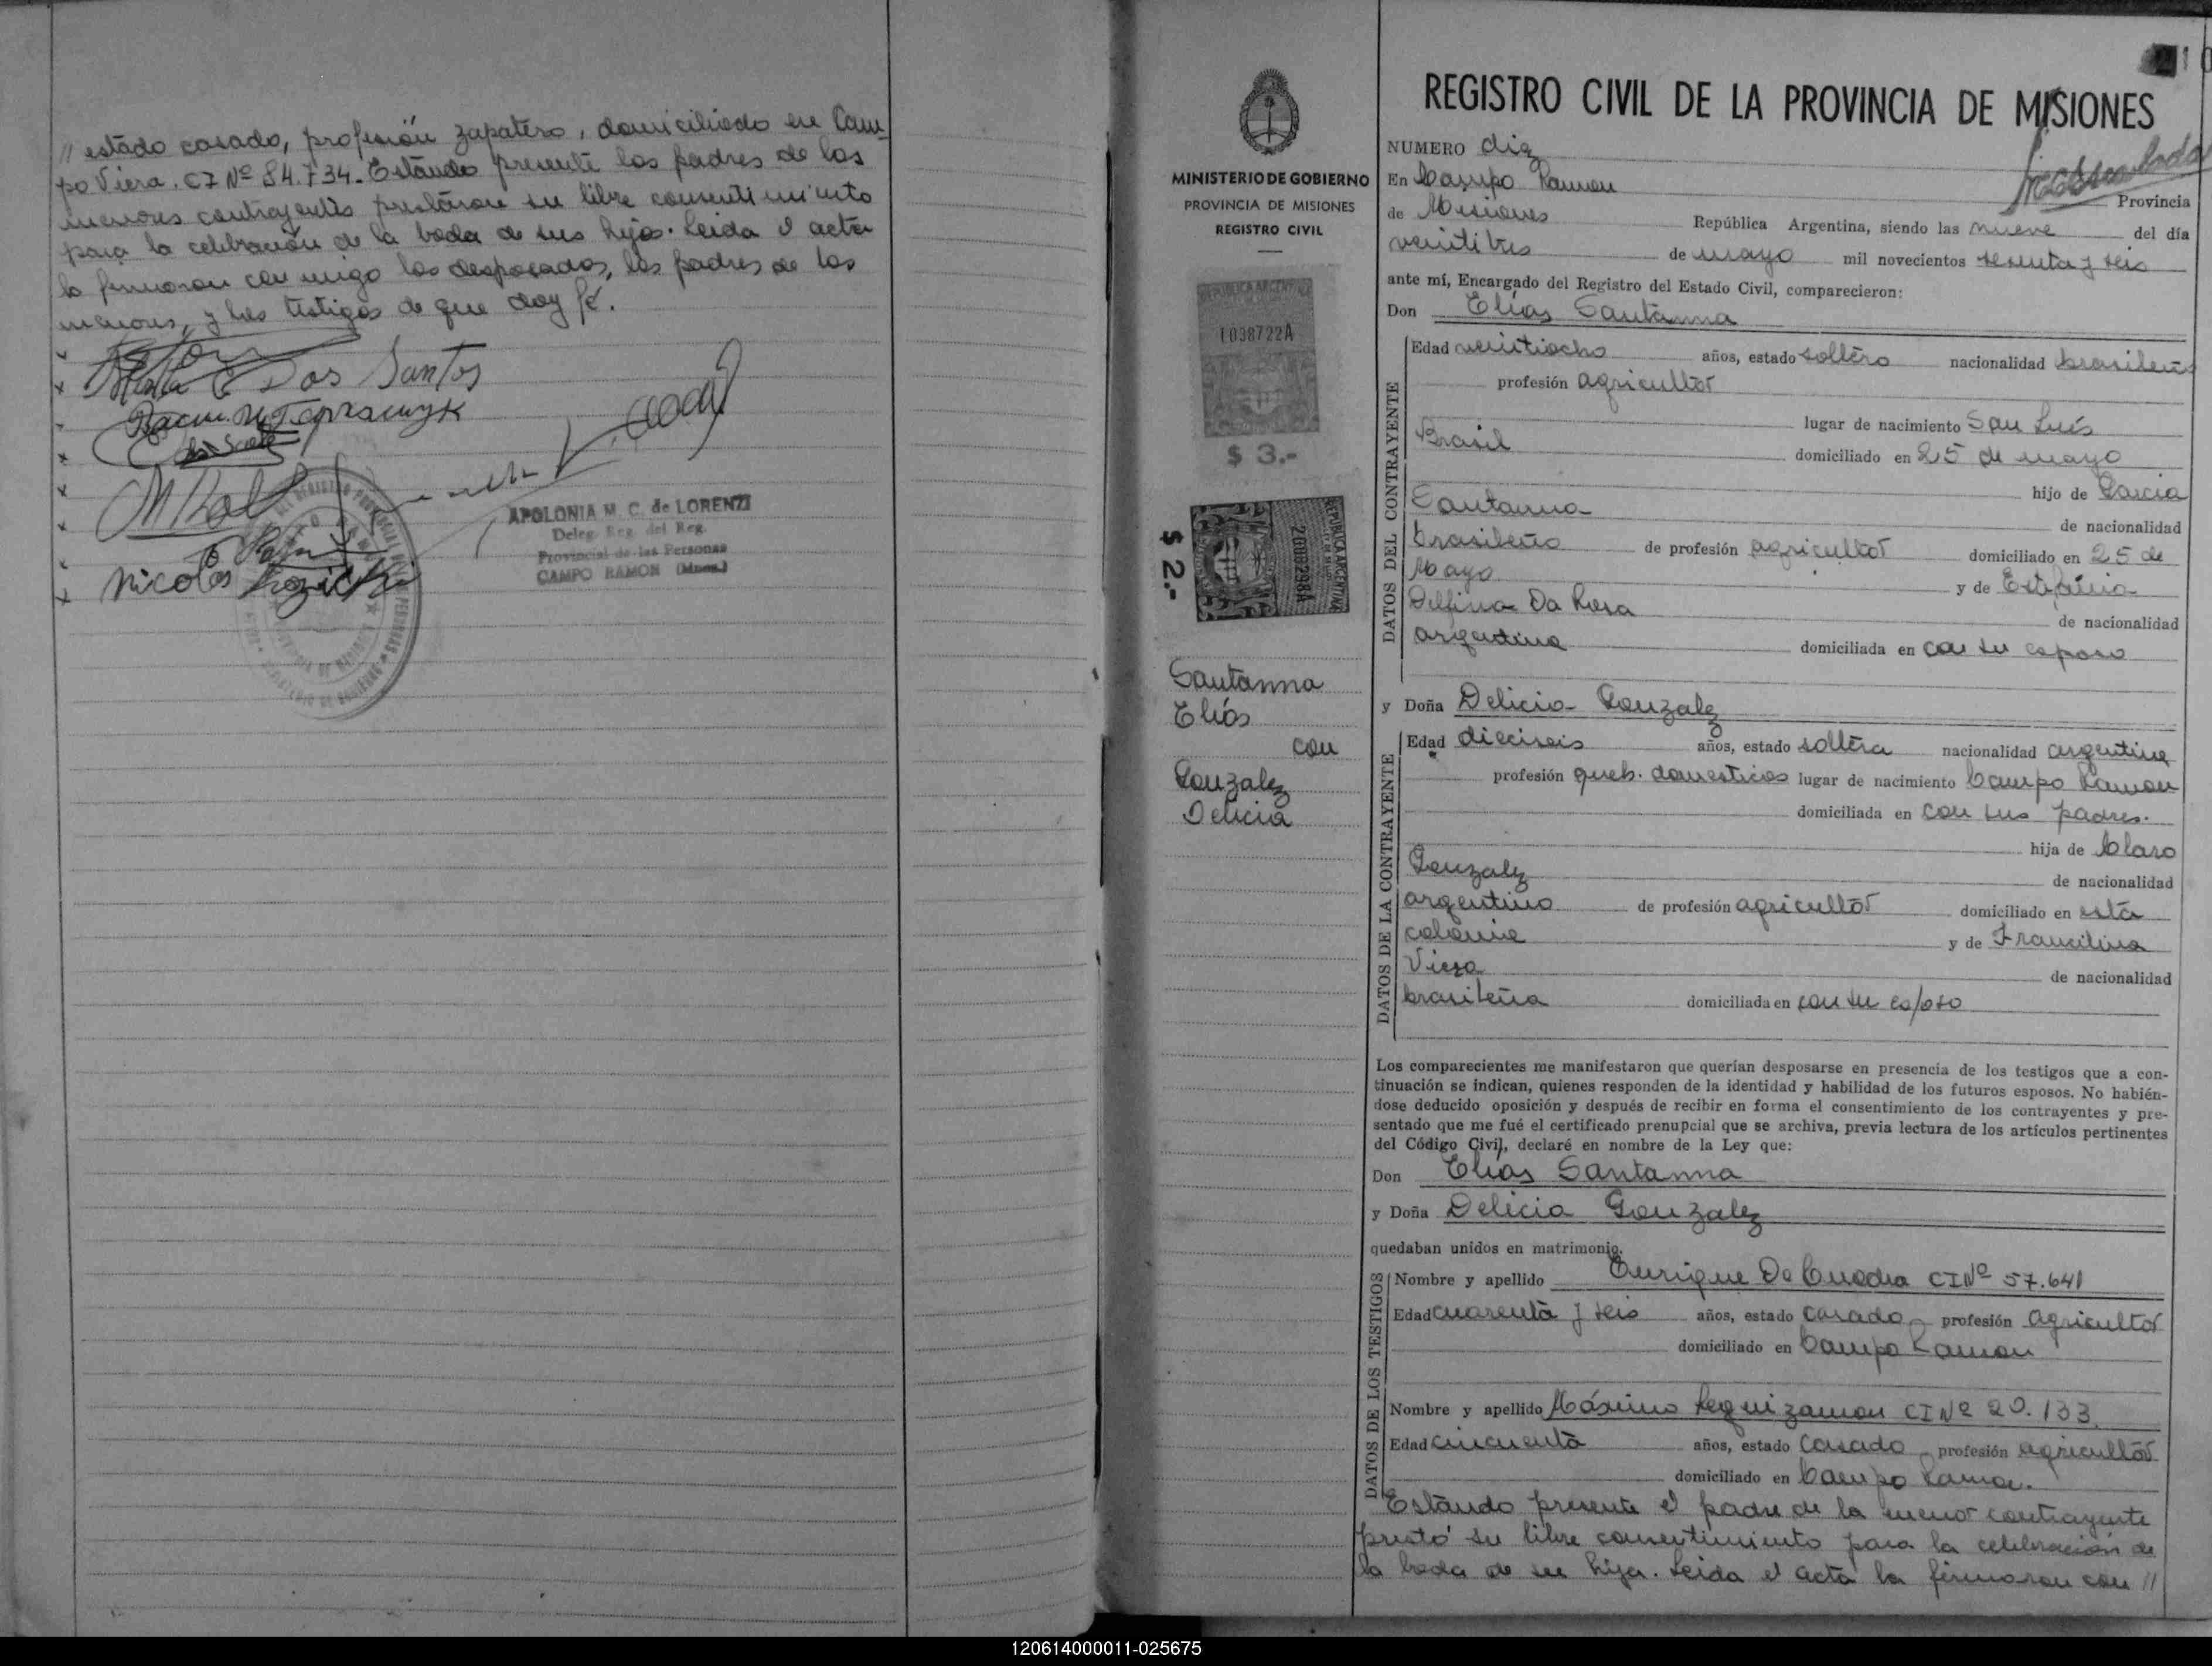 // estádo casado, profesión zapatero, domiciliado en Cam-
po Viera. CI Nº 84.734.- Estándo presente los padres de los
menores contrayentes prestáron su libre consentimiento
para la celebración de la boda de sus hijos. Leida el acta
la firmaron con migo los desposados, los padres de los
menores, y los testigos de que doy fé.
Dos Santos
Nicolas
APOLONIA M. C. de LORENZI
Deleg. Reg. del Reg.
Provincial de las Personas
CAMPO RAMON (Mnes.)
MINISTERIO DE GOBIERNO
PROVINCIA DE MISIONES
REGISTRO CIVIL
REPUBLICA ARGENTINA
1038722A
$ 3.-
$ 2.-
REPUBLICA ARGENTINA
2000298A
Santanna
Elías
con
Gonzalez
Delicia
REGISTRO CIVIL DE LA PROVINCIA DE MISIONES
NUMERO diez
En Campo Ramon
Provincia
de Misiones República Argentina, siendo las nueve del día
veintitres de mayo mil novecientos sesenta y seis
ante mí, Encargado del Registro del Estado Civil, comparecieron:
Don Elías Santanna
DATOS DEL CONTRAYENTE
Edad veintiocho años, estado soltéro nacionalidad brasileño
profesión agricultor
lugar de nacimiento San Luís
Brasil domiciliado en 25 de mayo
hijo de Garcia
Santanna de nacionalidad
brasileño de profesión agricultor domiciliado en 25 de
Mayo y de Estefánia
Delfina Da Rosa de nacionalidad
argentina domiciliada en con su esposo
y Doña Delicia Gonzalez
DATOS DE LA CONTRAYENTE
Edad dieciseis años, estado soltéra nacionalidad argentina
profesión queh. domesticos lugar de nacimiento Campo Ramon
domiciliada en con sus padres.
hija de Claro
Gonzalez de nacionalidad
argentino de profesión agricultor domiciliado en está
colonia y de Francilina
Viera de nacionalidad
brasileña domiciliada en con su esposo
Los comparecientes me manifestaron que querían desposarse en presencia de los testigos que a con-
tinuación se indican, quienes responden de la identidad y habilidad de los futuros esposos. No habién-
dose deducido oposición y después de recibir en forma el consentimiento de los contrayentes y pre-
sentado que me fué el certificado prenupcial que se archiva, previa lectura de los artículos pertinentes
del Código Civil, declaré en nombre de la Ley que:
Don Elías Santanna
y Doña Delicia Gonzalez
quedaban unidos en matrimonio.
DATOS DE LOS TESTIGOS
Nombre y apellido Enrique De Cuadra CI Nº 57.641
Edad cuarentá y seis años, estado casado profesión agricultor
domiciliado en Campo Ramon
Nombre y apellido Máximo Leguizamon CI Nº 20.133.
Edad cincuentá años, estado casado profesión agricultor
domiciliado en Campo Ramon.
Estándo presente el padre de la menor contrayente
prestó su libre consentimiento para la celebración de
la boda de su hija. Leida el acta la firmaron con //
120614000011-025675